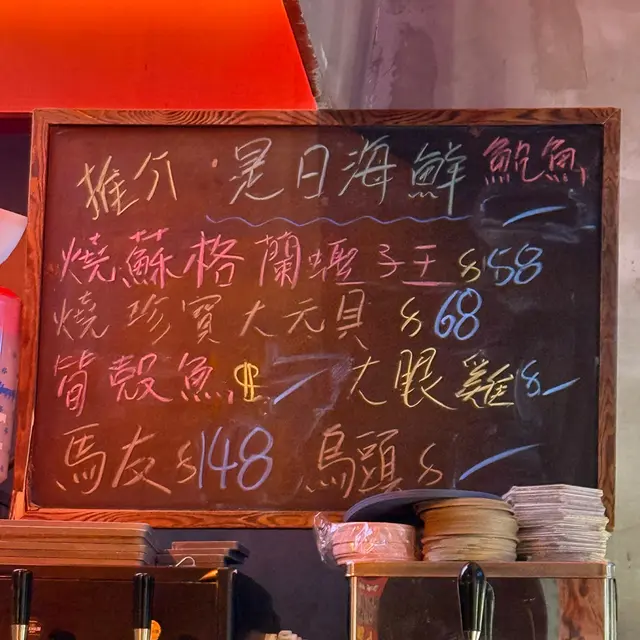 推介·是日海鮮 鮑魚
燒蘇格蘭蟶子王 $158
燒珍寶大元貝 $68
筍殼魚 $ 大眼雞 $
馬友 $148 烏頭 $